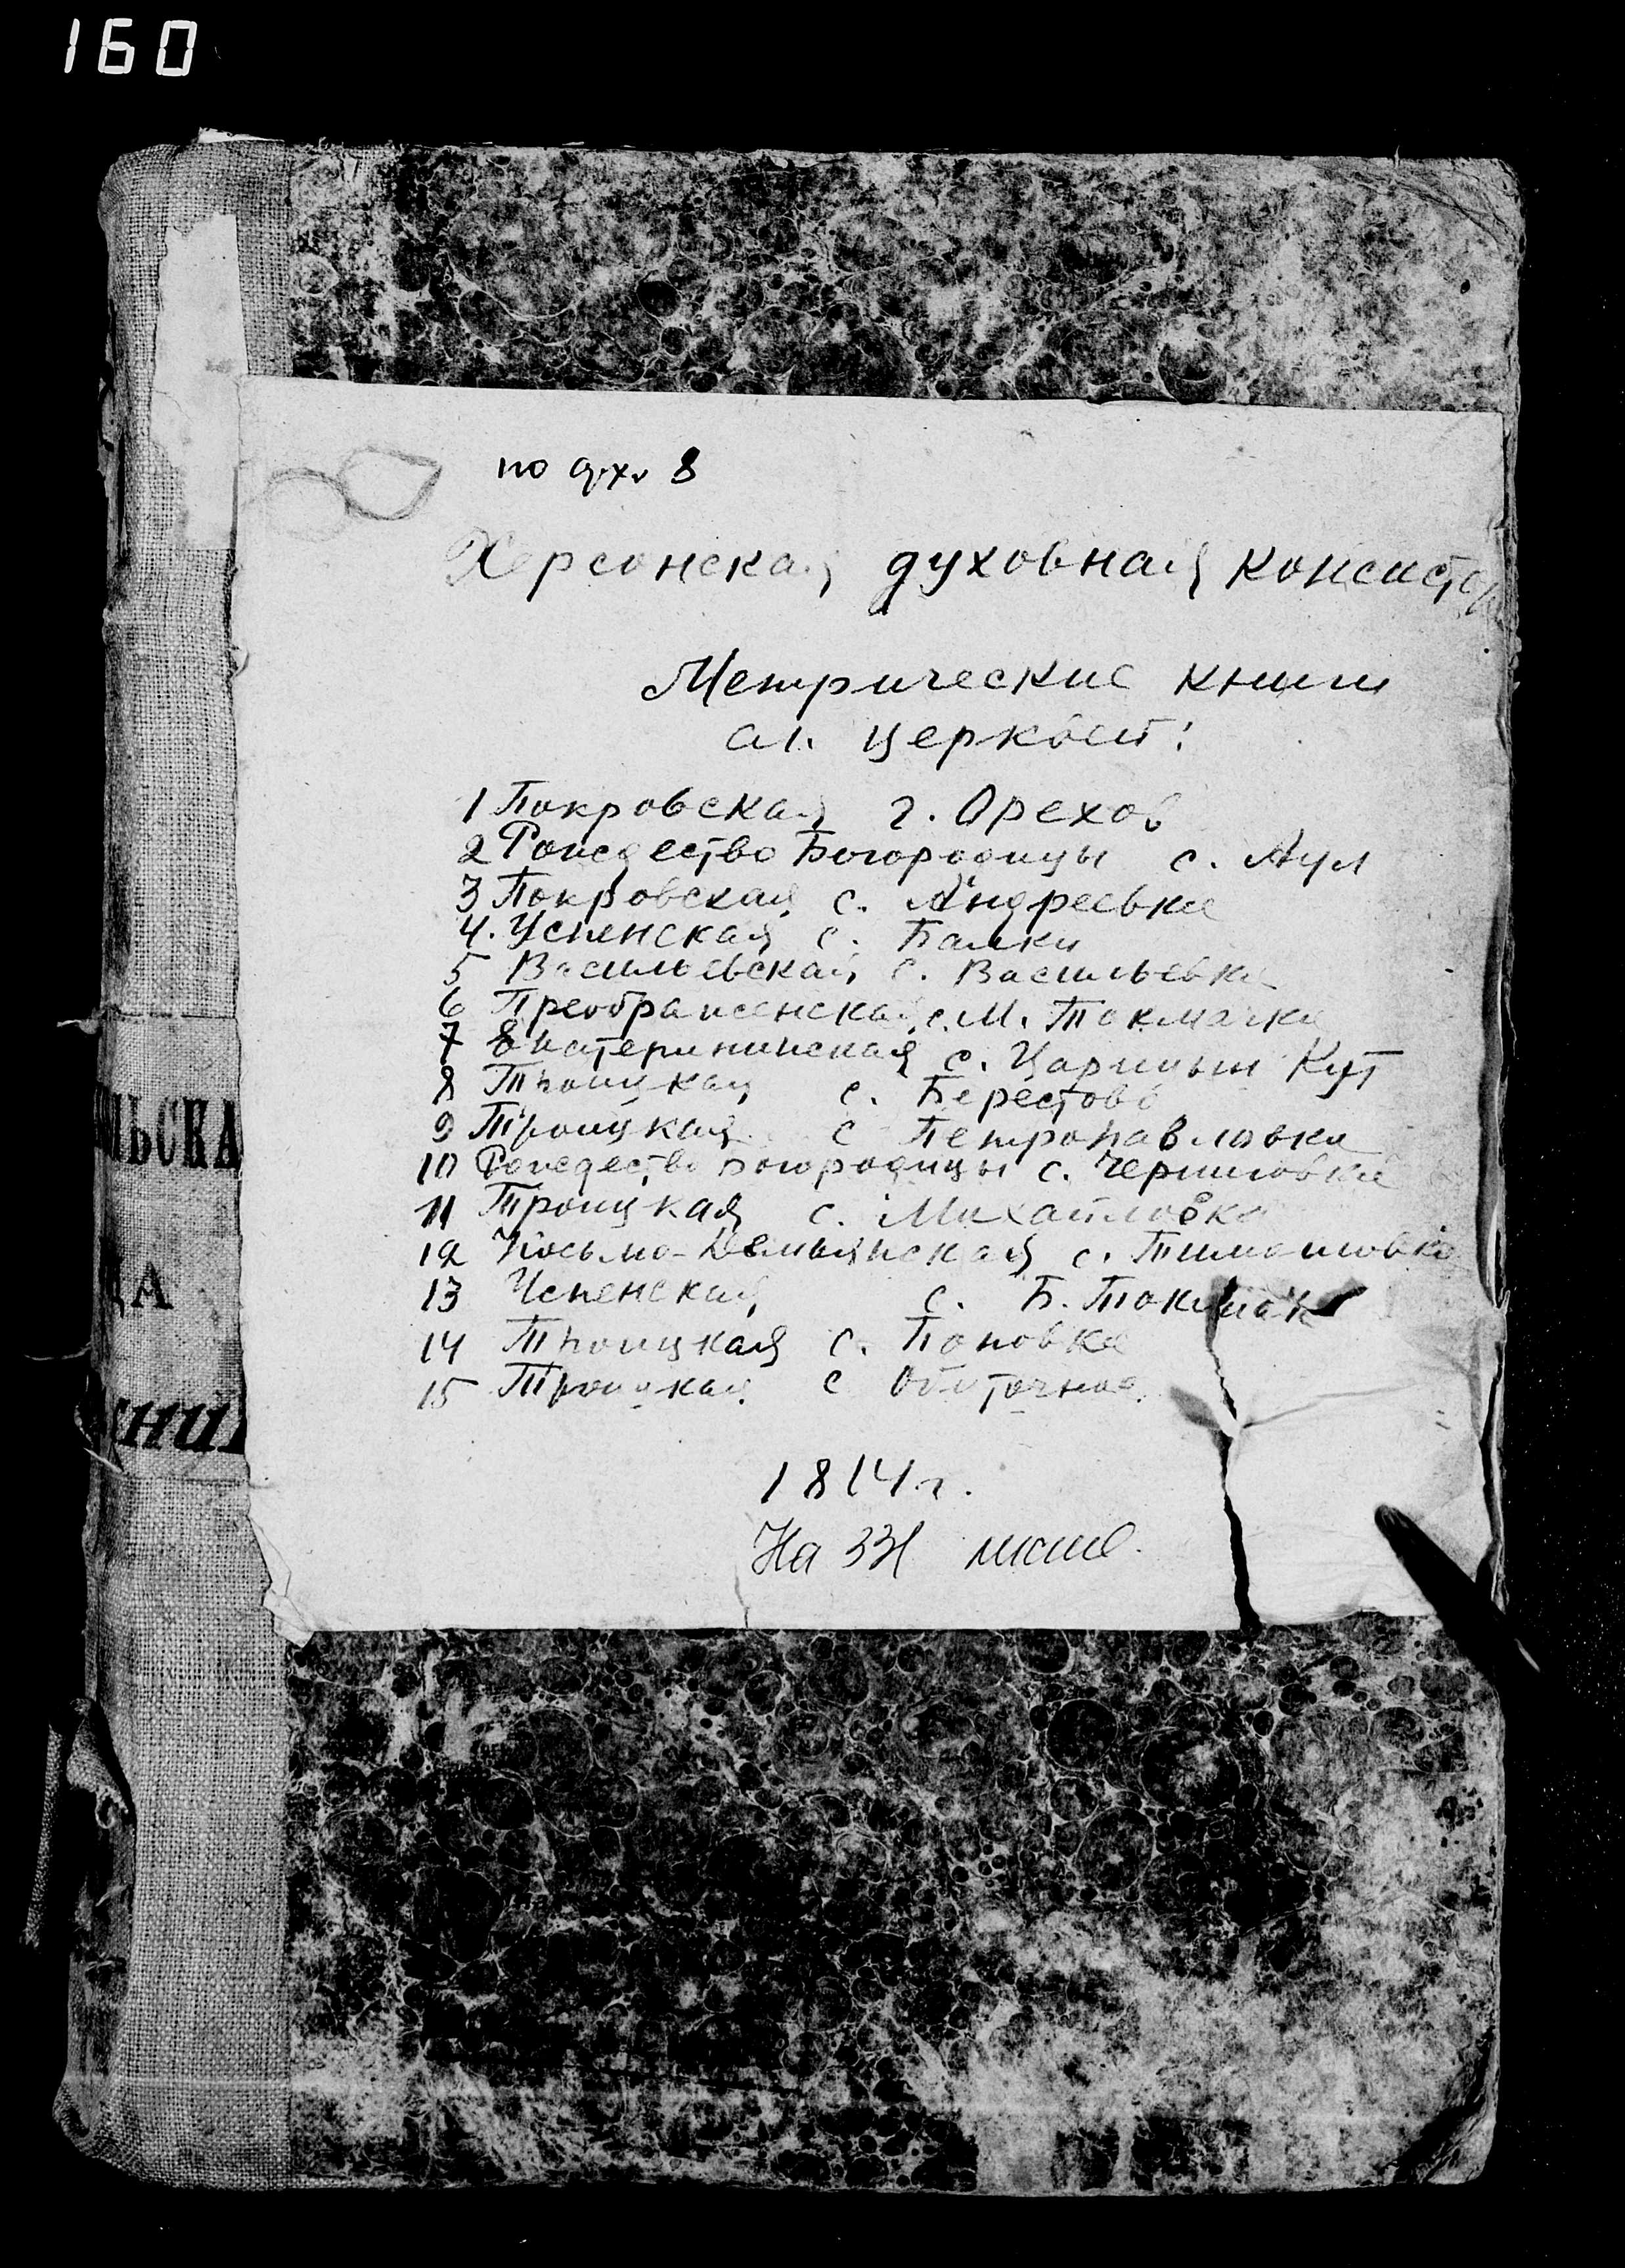 160
по дух. 8
Херсонская духовная консистор
Метрические книги
сл. церквей:
1 Покровская г. Орехов
2 Рождество Богородицы с. Аул
3 Покровская с. Андреевка
4. Успенская с. Балки
5 Васильевская с. Васильевка
6 Преображенская с. М. Токмачка
7 Екатерининская с. Царицын Кут
8 Троицкая с. Берестово
9 Троицкая с Петропавловка
10 Рождество Богородицы с. Черниговка
11 Троицкая с. Михайловка
12 Косьмо-Демьянская с. Тимошовка
13 Успенская с. Б. Токмак
14 Троицкая с. Поповка
15 Троицкая с Обиточная
1814 г.
На 331 листе.
ЛЬСКА
ЦА
СНИ